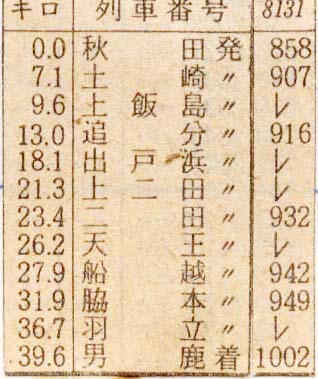 キロ 列車番号 8131
0.0 秋田発 858
7.1 土崎〃 907
9.6 上飯島〃 レ
13.0 追分〃 916
18.1 出戸浜〃 レ
21.3 上二田〃 レ
23.4 二田〃 932
26.2 天王〃 レ
27.9 船越〃 942
31.9 脇本〃 949
36.7 羽立〃 レ
39.6 男鹿着 1002